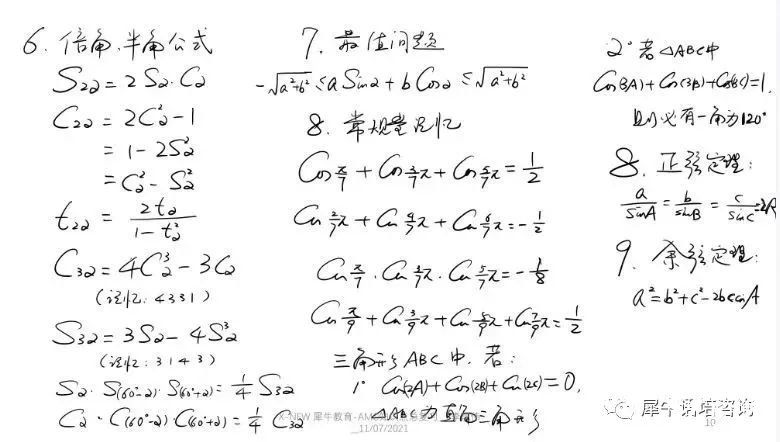 6. 倍角.半角公式
S₂₂ = 2S₂·C₂
C₂₂ = 2C₂² - 1
= 1 - 2S₂²
= C₂² - S₂²
t₂₂ = 2t₂ / (1 - t₂²)
C₃₂ = 4C₂³ - 3C₂
(记忆: 4331)
S₃₂ = 3S₂ - 4S₂³
(记忆: 3143)
S₂·S(60°-2)·S(60°+2) = 1/4 S₃₂
C₂·C(60°-2)·C(60°+2) = 1/4 C₃₂
7. 最值问题
-√(a²+b²) ≤ a Sin2 + b Cos2 ≤ √(a²+b²)
8. 常规量记忆
Cos π/7 + Cos 3/7 π + Cos 5/7 π = 1/2
Cos 2/7 π + Cos 4/7 π + Cos 6/7 π = -1/2
Cos π/7 · Cos 3/7 π · Cos 5/7 π = -1/8
Cos π/9 + Cos 3/9 π + Cos 5/9 π + Cos 7/9 π = 1/2
三角形 ABC 中, 若:
1° Cos(2A) + Cos(2B) + Cos(2C) = 0,
△ABC 为直角三角形
2° 若 △ABC 中
Cos(3A) + Cos(3B) + Cos(3C) = 1,
则必有一角为120°
8. 正弦定理:
a/sinA = b/sinB = c/sinC = 2R
9. 余弦定理:
a² = b² + c² - 2bc cosA
X-NEW 犀牛教育-AM
_11/07/2021
10
犀牛 咨询